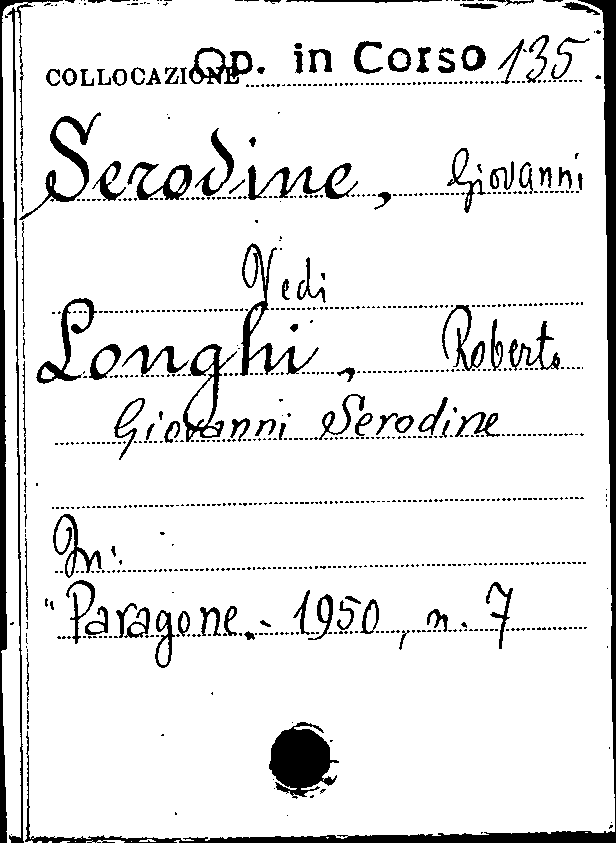 COLLOCAZIONE Op. in Corso 135
Serodine, Giovanni
Vedi
Longhi, Roberto
Giovanni Serodine
In:
"Paragone.- 1950, n. 7